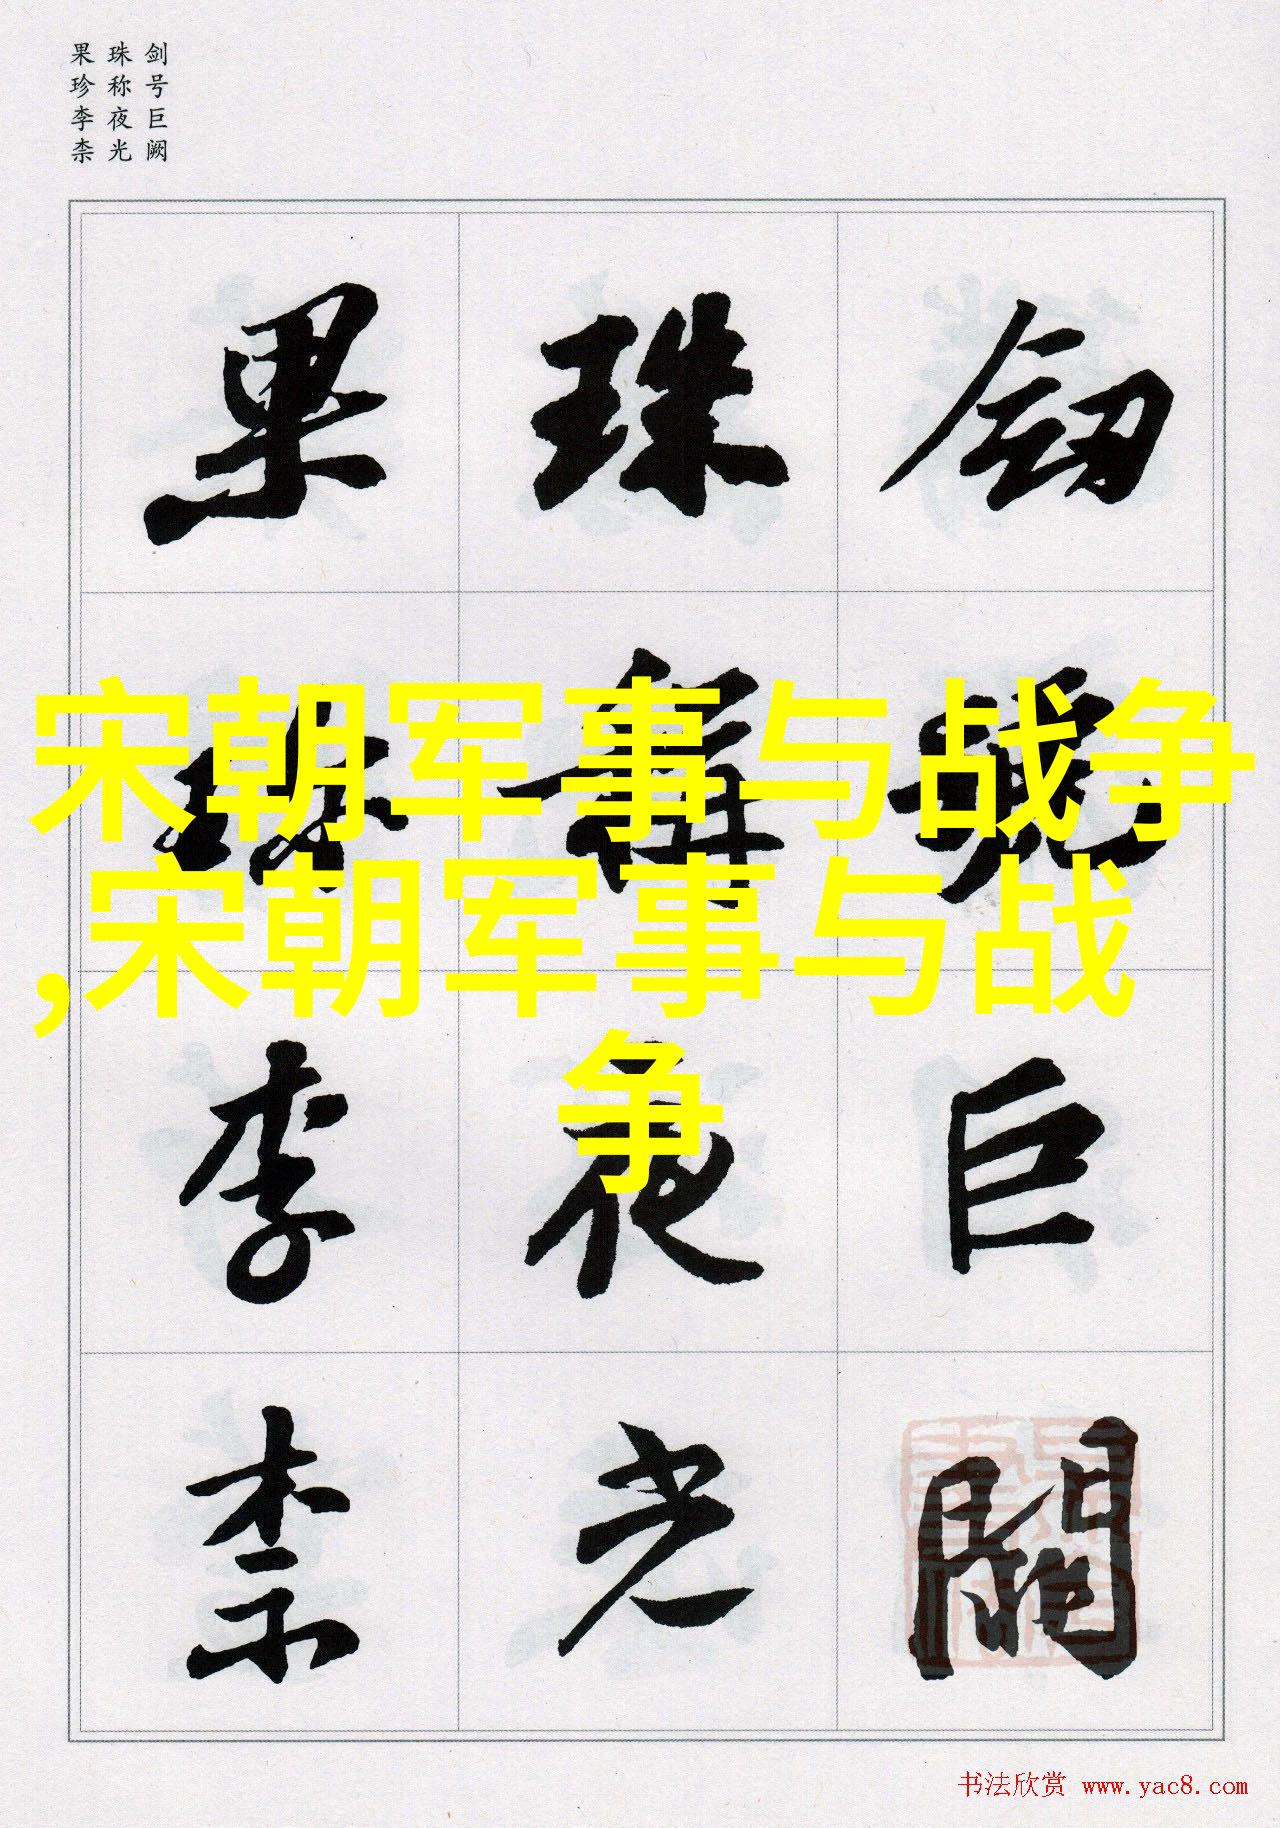 剑号巨阙
珠称夜光
果珍李柰
劒號巨闕
珠稱夜光
果珍李柰
宋朝军事与战争
,宋朝军事与战
争
书法欣赏 www.yac8.com